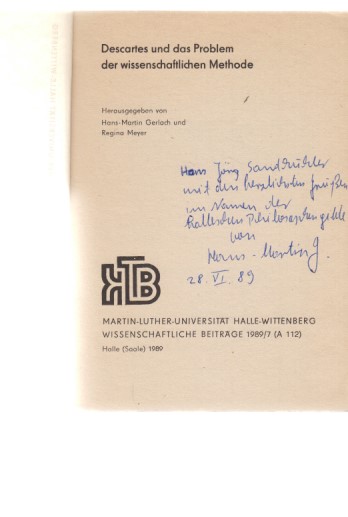 Descartes und das Problem
der wissenschaftlichen Methode
Herausgegeben von
Hans-Martin Gerlach und
Regina Meyer
Hans Jörg Sandkühler
mit den herzlichsten Grüßen
im Namen der
Halleschen
von
Hans-Martin G.
28. VI. 89
HTB
MARTIN-LUTHER-UNIVERSITÄT HALLE-WITTENBERG
WISSENSCHAFTLICHE BEITRÄGE 1989/7 (A 112)
Halle (Saale) 1989